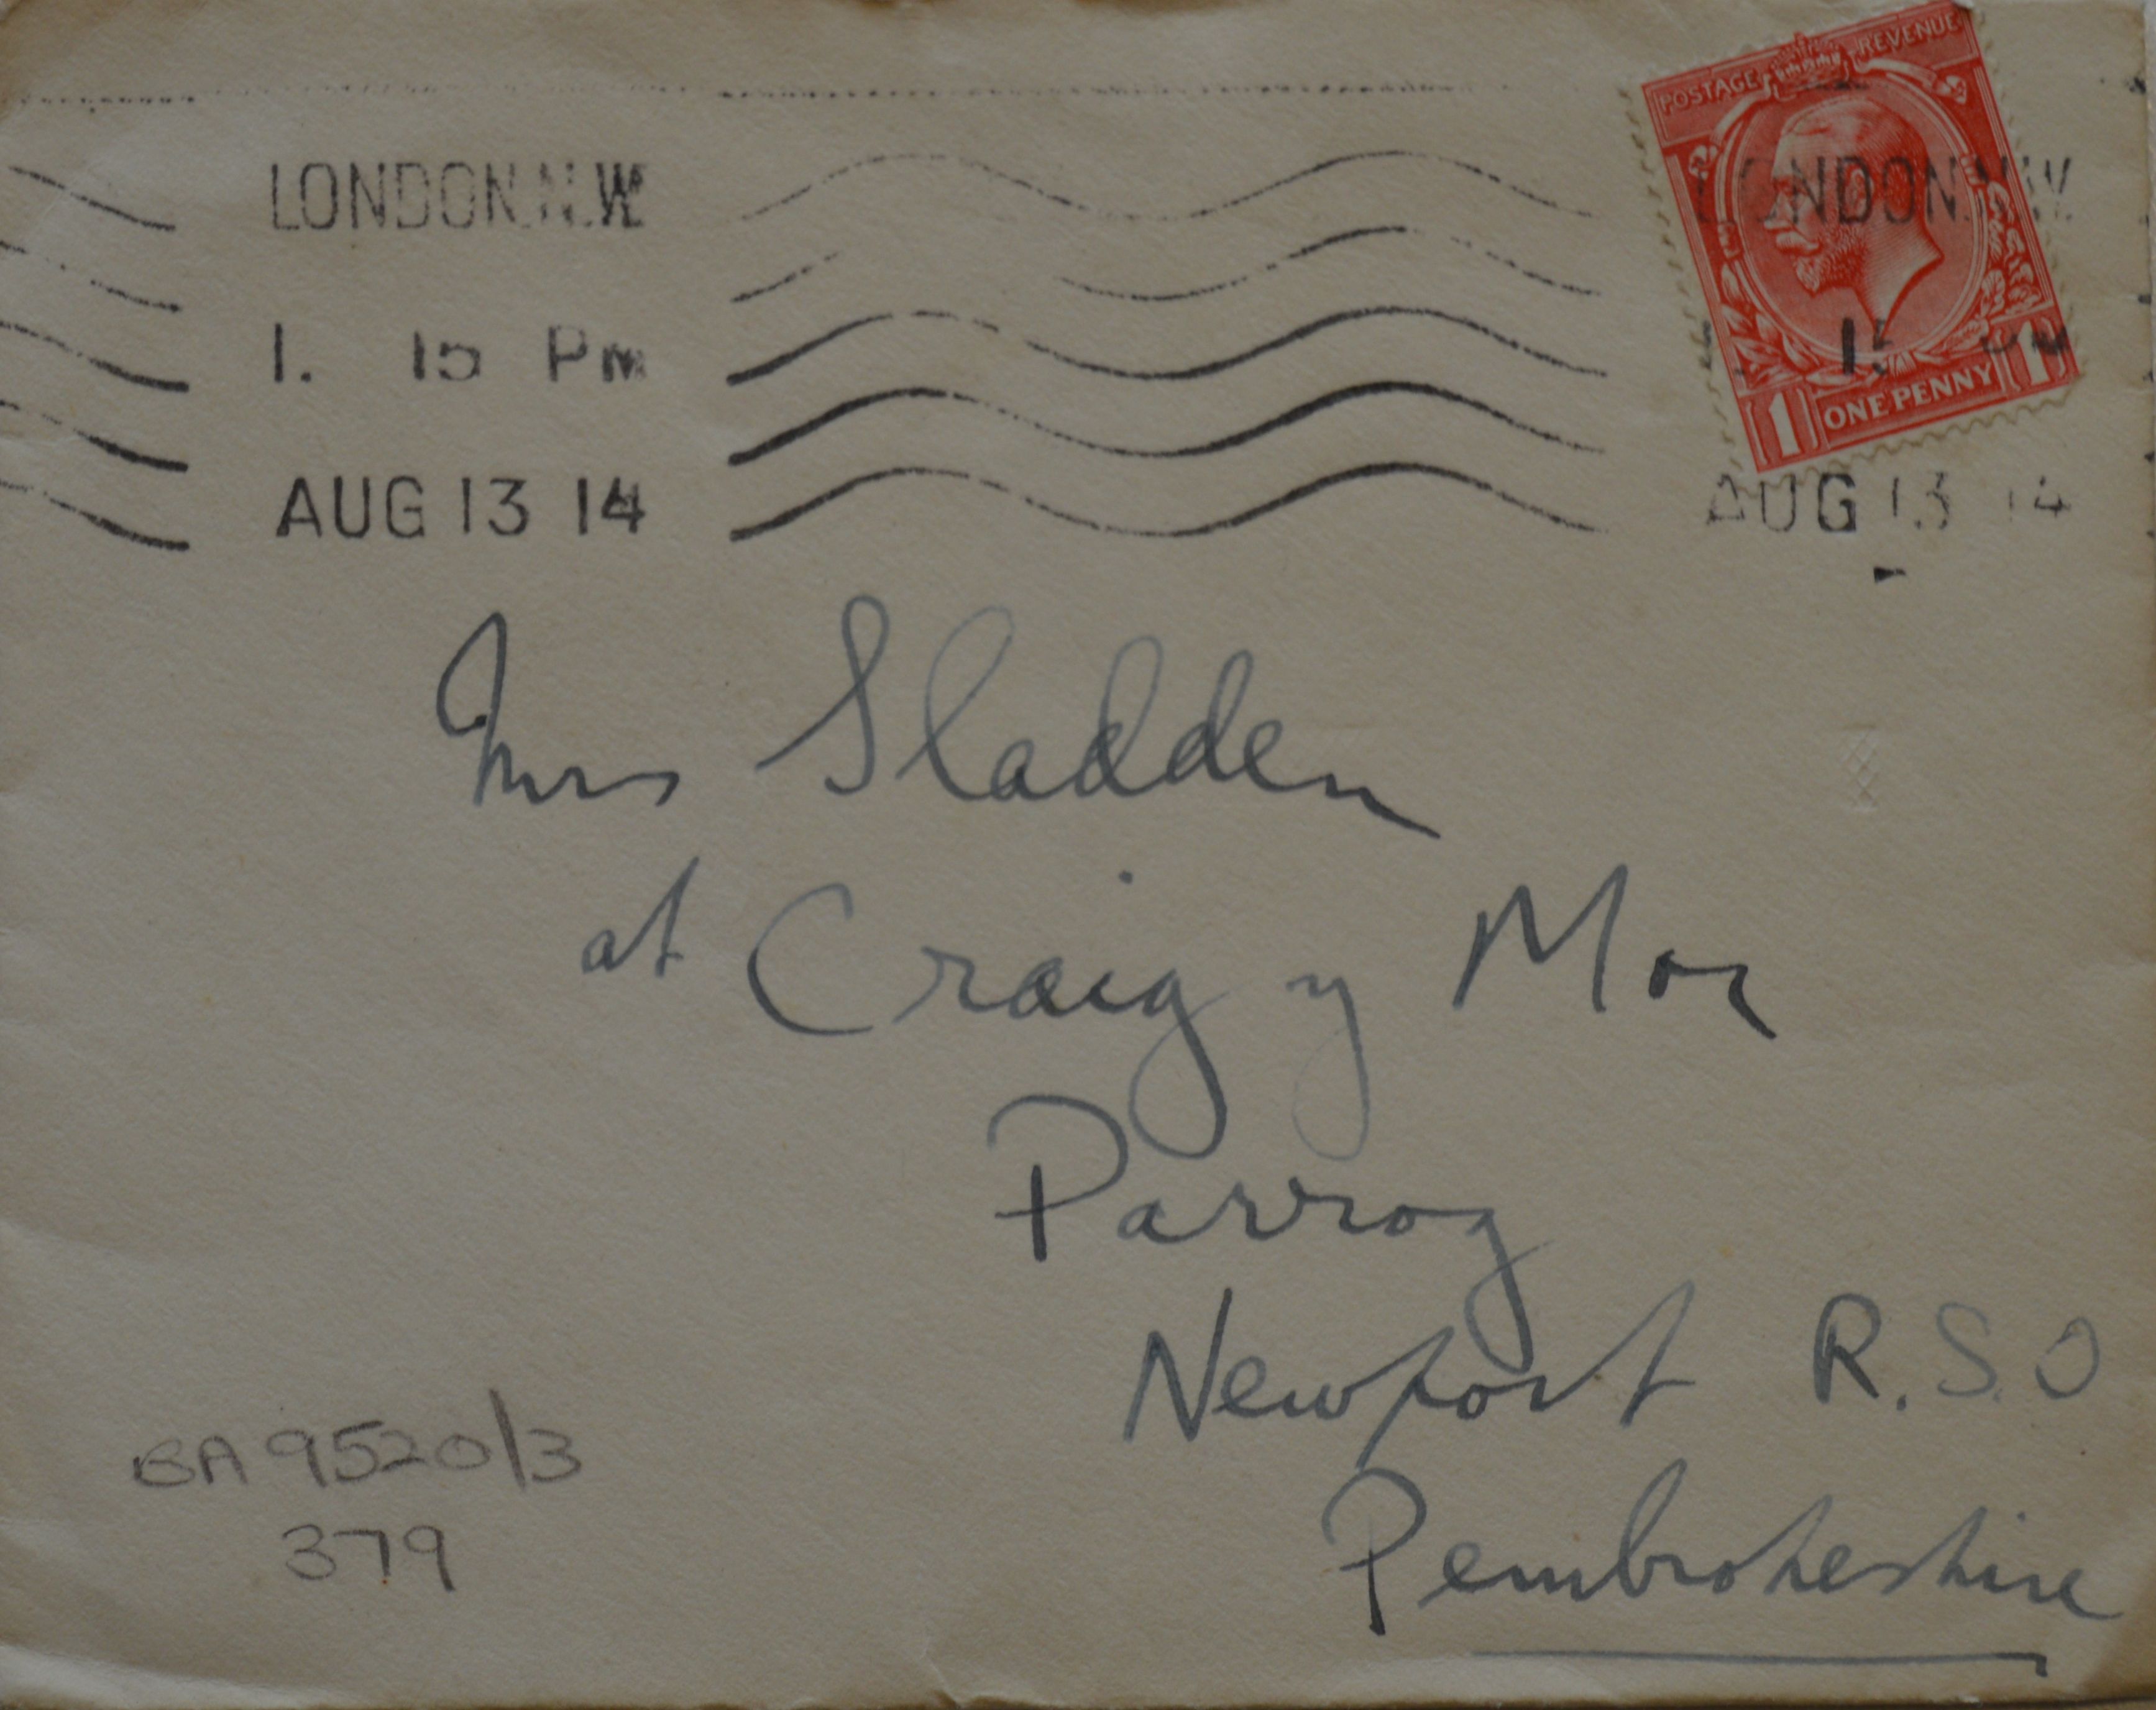 POSTAGE REVENUE
LONDON.N.W. LONDON.N.W.
1. 15 PM 15 PM
1 ONE PENNY 1
AUG 13 14 AUG 13 14
Mrs Sladden
at Craig y Mor
Parrog
Newport R.S.O
Pembrokeshire
BA 9520/3
379